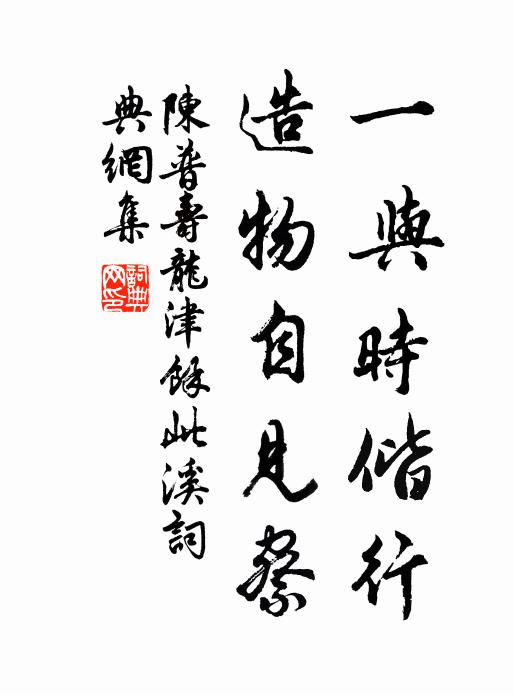 一與時偕行
造物自見察
陳普壽龍津餘此溪詞
典網集
詞典
网印